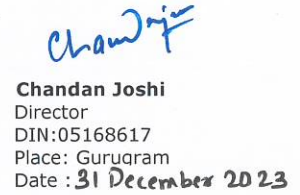 Chandan Joshi
Director
DIN:05168617
Place: Gurugram
Date : 31 December 2023